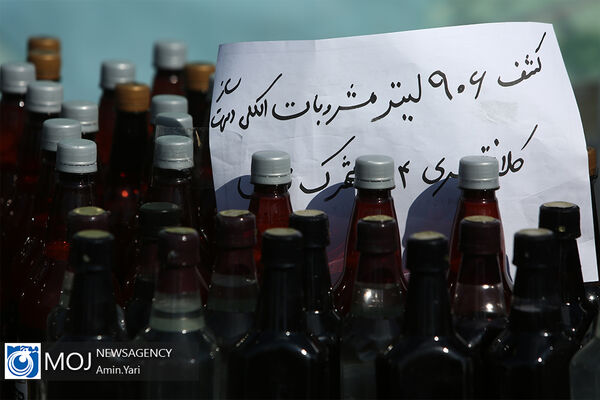 کشف ۹۰۶ لیتر مشروبات الکلی دست ساز
کلانتری ۱۴ شهرک
MOJ NEWSAGENCY
Amin.Yari